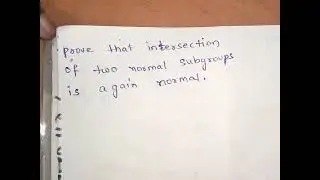 prove that intersection
of two normal subgroups
is again normal.